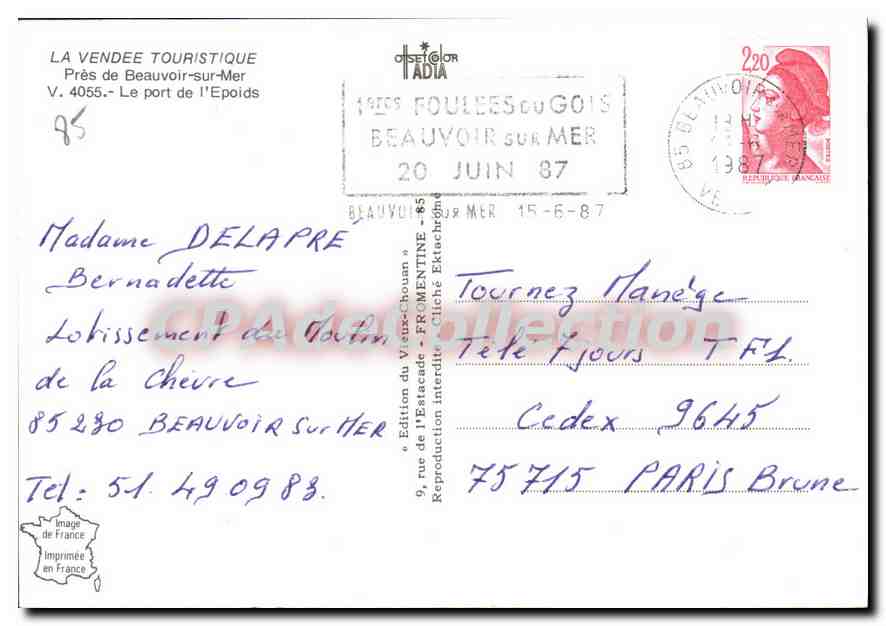 LA VENDEE TOURISTIQUE
Près de Beauvoir-sur-Mer
V. 4055.- Le port de l'Epoids
85
offset color
ADIA
1eres FOULEES DU GOIS
BEAUVOIR SUR MER
20 JUIN 87
BEAUVOIR SUR MER 15-6-87
85 BEAUVOIR S MER
1987
VE
2,20
POSTES
REPUBLIQUE FRANÇAISE
Madame DELAPRÉ
Bernadette
Lotissement du Moulin
de la Chèvre
85230 BEAUVOIR sur MER
Tel: 51.49 09 83.
Image
de France
Imprimée
en France
« Edition du Vieux-Chouan »
9, rue de l'Estacade - FROMENTINE - 85
Reproduction interdite - Cliché Ektachrome
Tournez Manége
Télé 7 jours TF1.
Cedex 9645
75715 PARIS Brune
CPAdeCollection